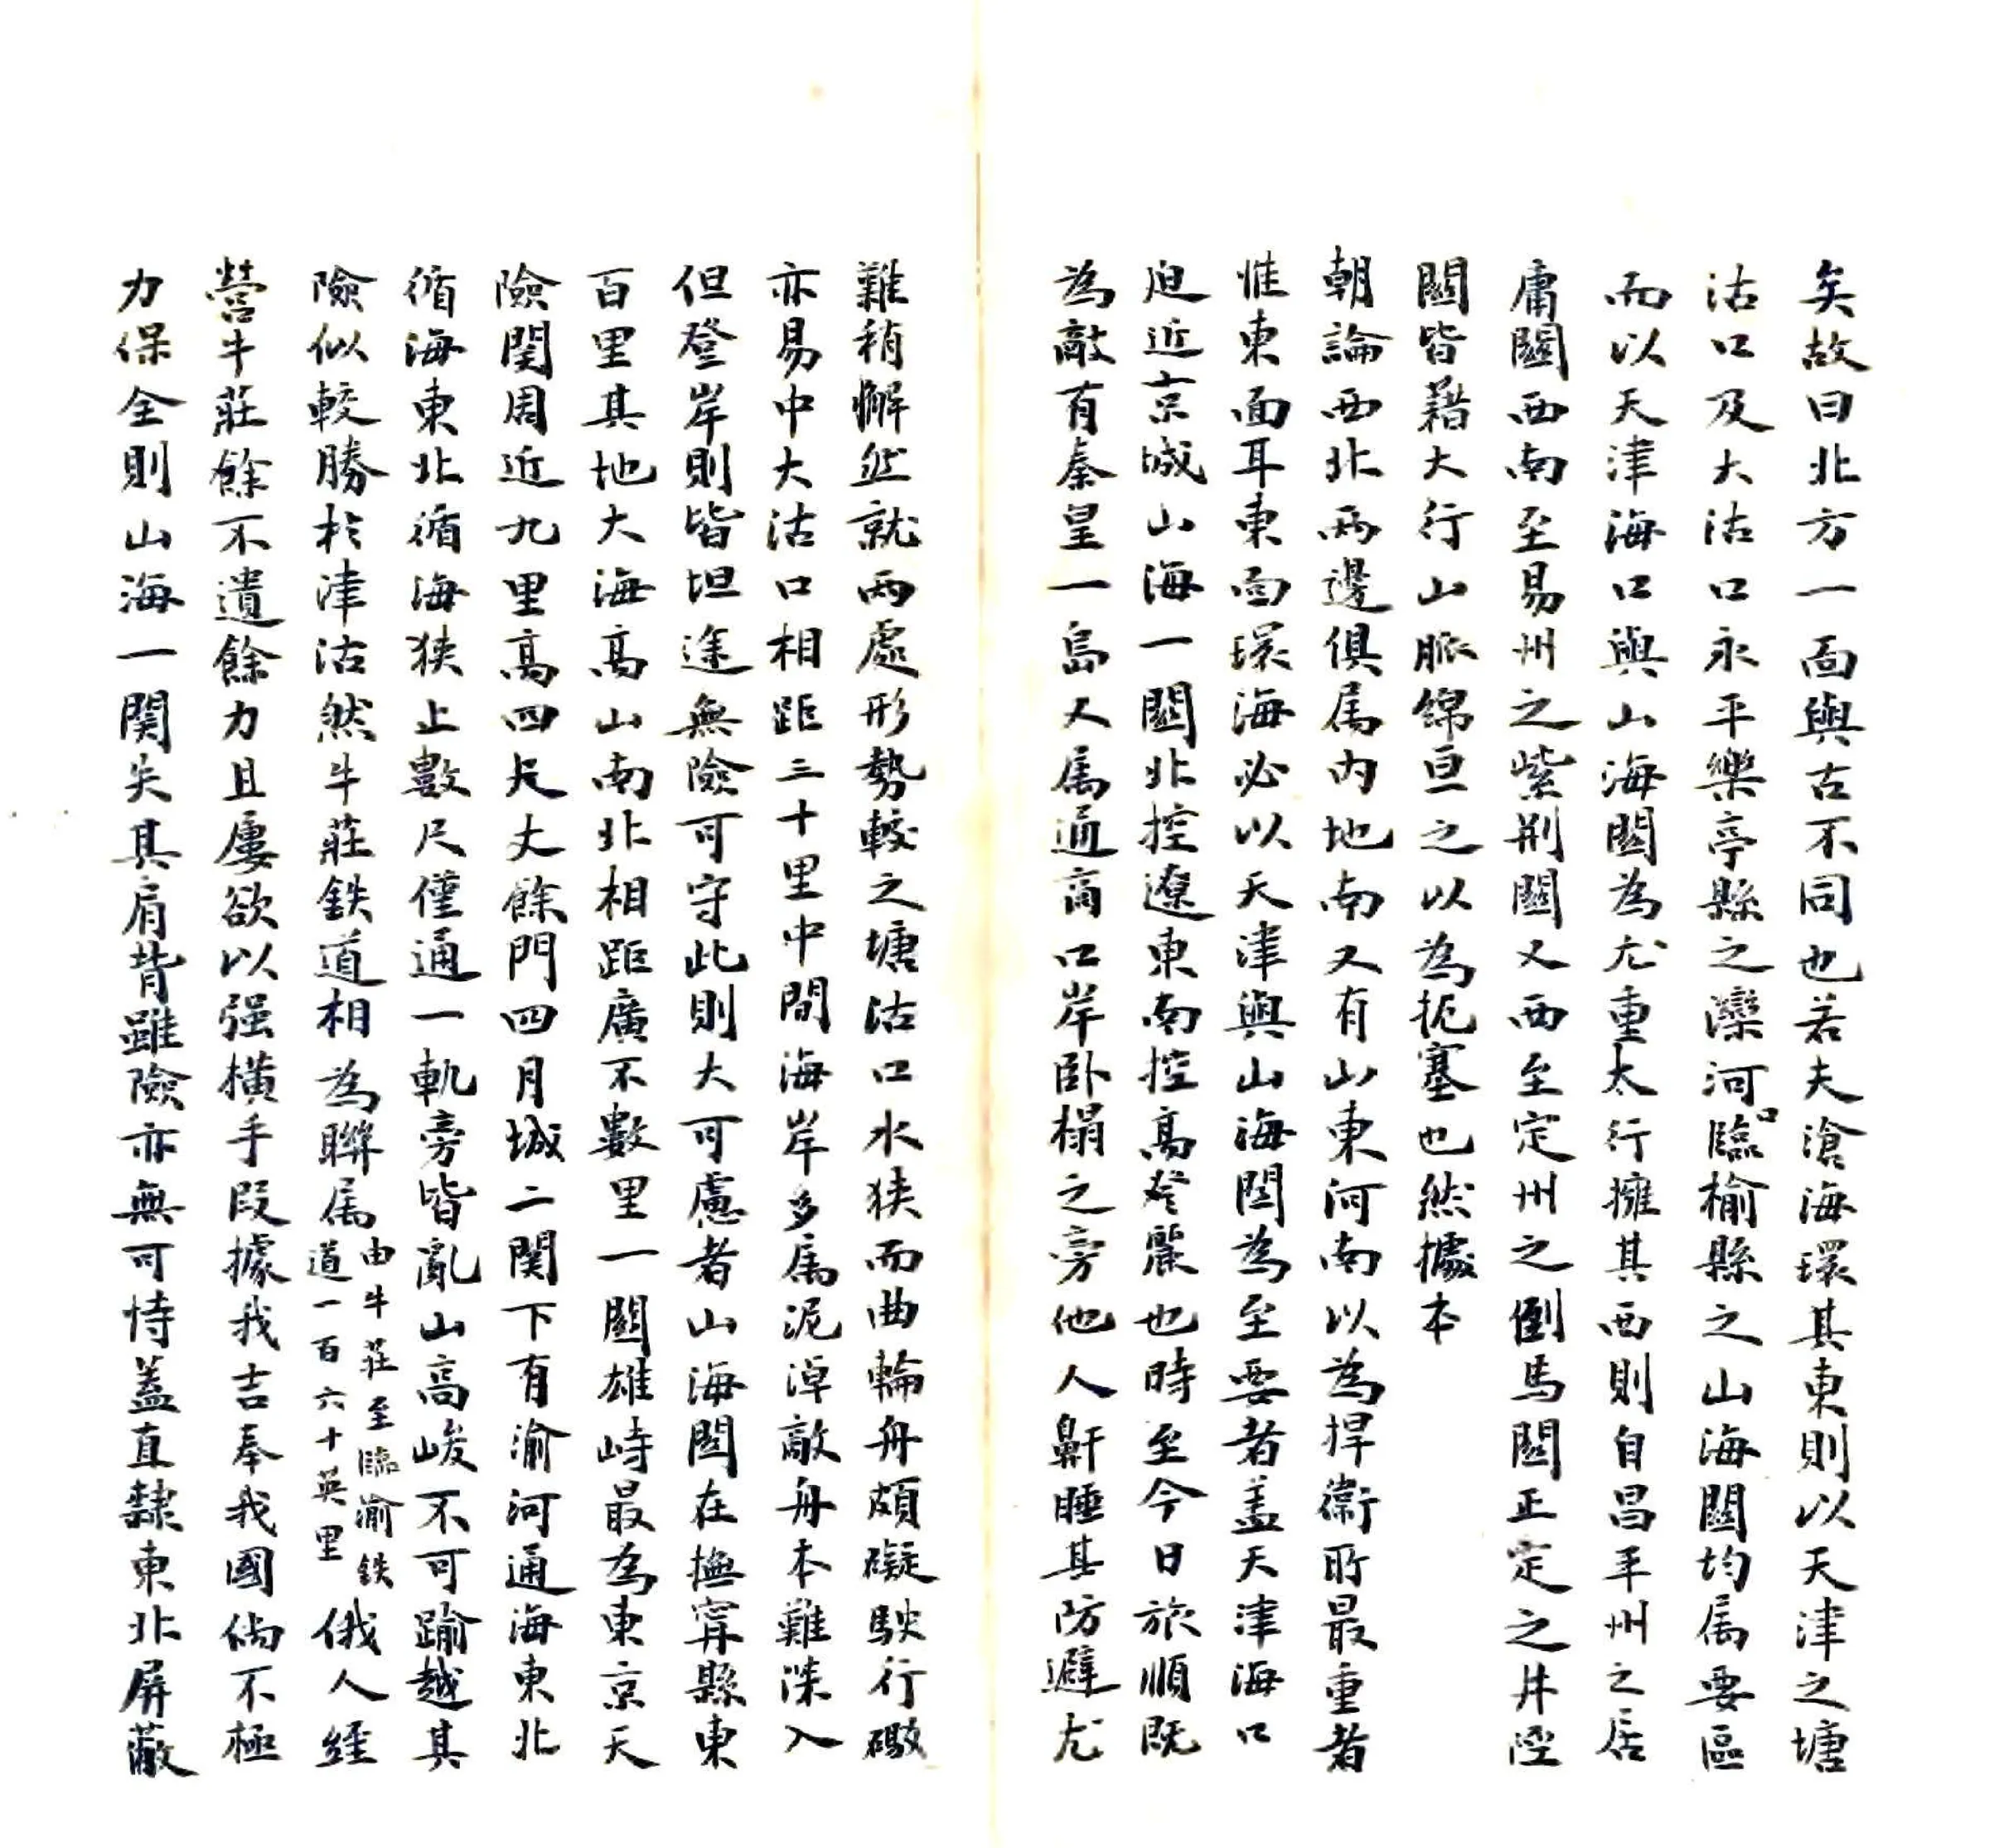 矣故曰北方一面與古不同也若夫滄海環其東則以天津之塘
沽口及大沽口永平樂亭縣之灤河口臨榆縣之山海關均属要區
而以天津海口與山海關為尤重太行擁其西則自昌平州之居
庸關西南至易州之紫荆關又西至定州之倒馬關正定之井陘
關皆藉大行山脈綿亘之以為扼塞也然據本
朝論西北兩邊俱属内地南又有山東河南以為捍衛所最重者
惟東面耳東面環海必以天津與山海関為至要者盖天津海口
迫近京城山海一關北控遼東南控高麗也時至今日旅順既
為敵有秦皇一島又属通商口岸卧榻之旁他人鼾睡其防避尤
難稍懈然就兩處形勢較之塘沽口水狭而曲輪舟頗礙駛行礮
亦易中大沽口相距三十里中間海岸多属泥淖敵舟本難深入
但登岸則皆坦途無險可守此則大可慮者山海関在撫寧縣東
百里其地大海高山南北相距廣不數里一關雄峙最為東京天
險関周近九里高四尺丈餘門四月城二関下有渝河通海東北
循海東北循海狭止數尺僅通一軌旁皆亂山高峻不可踰越其
險似較勝於津沽然牛莊鉄道相為聯属由牛莊至臨渝鉄道一百六十英里俄人經
營牛莊餘不遺餘力且屢欲以强横手段據我吉奉我國倘不極
力保全則山海一関失其肩背雖險亦無可恃蓋直隸東北屏蔽